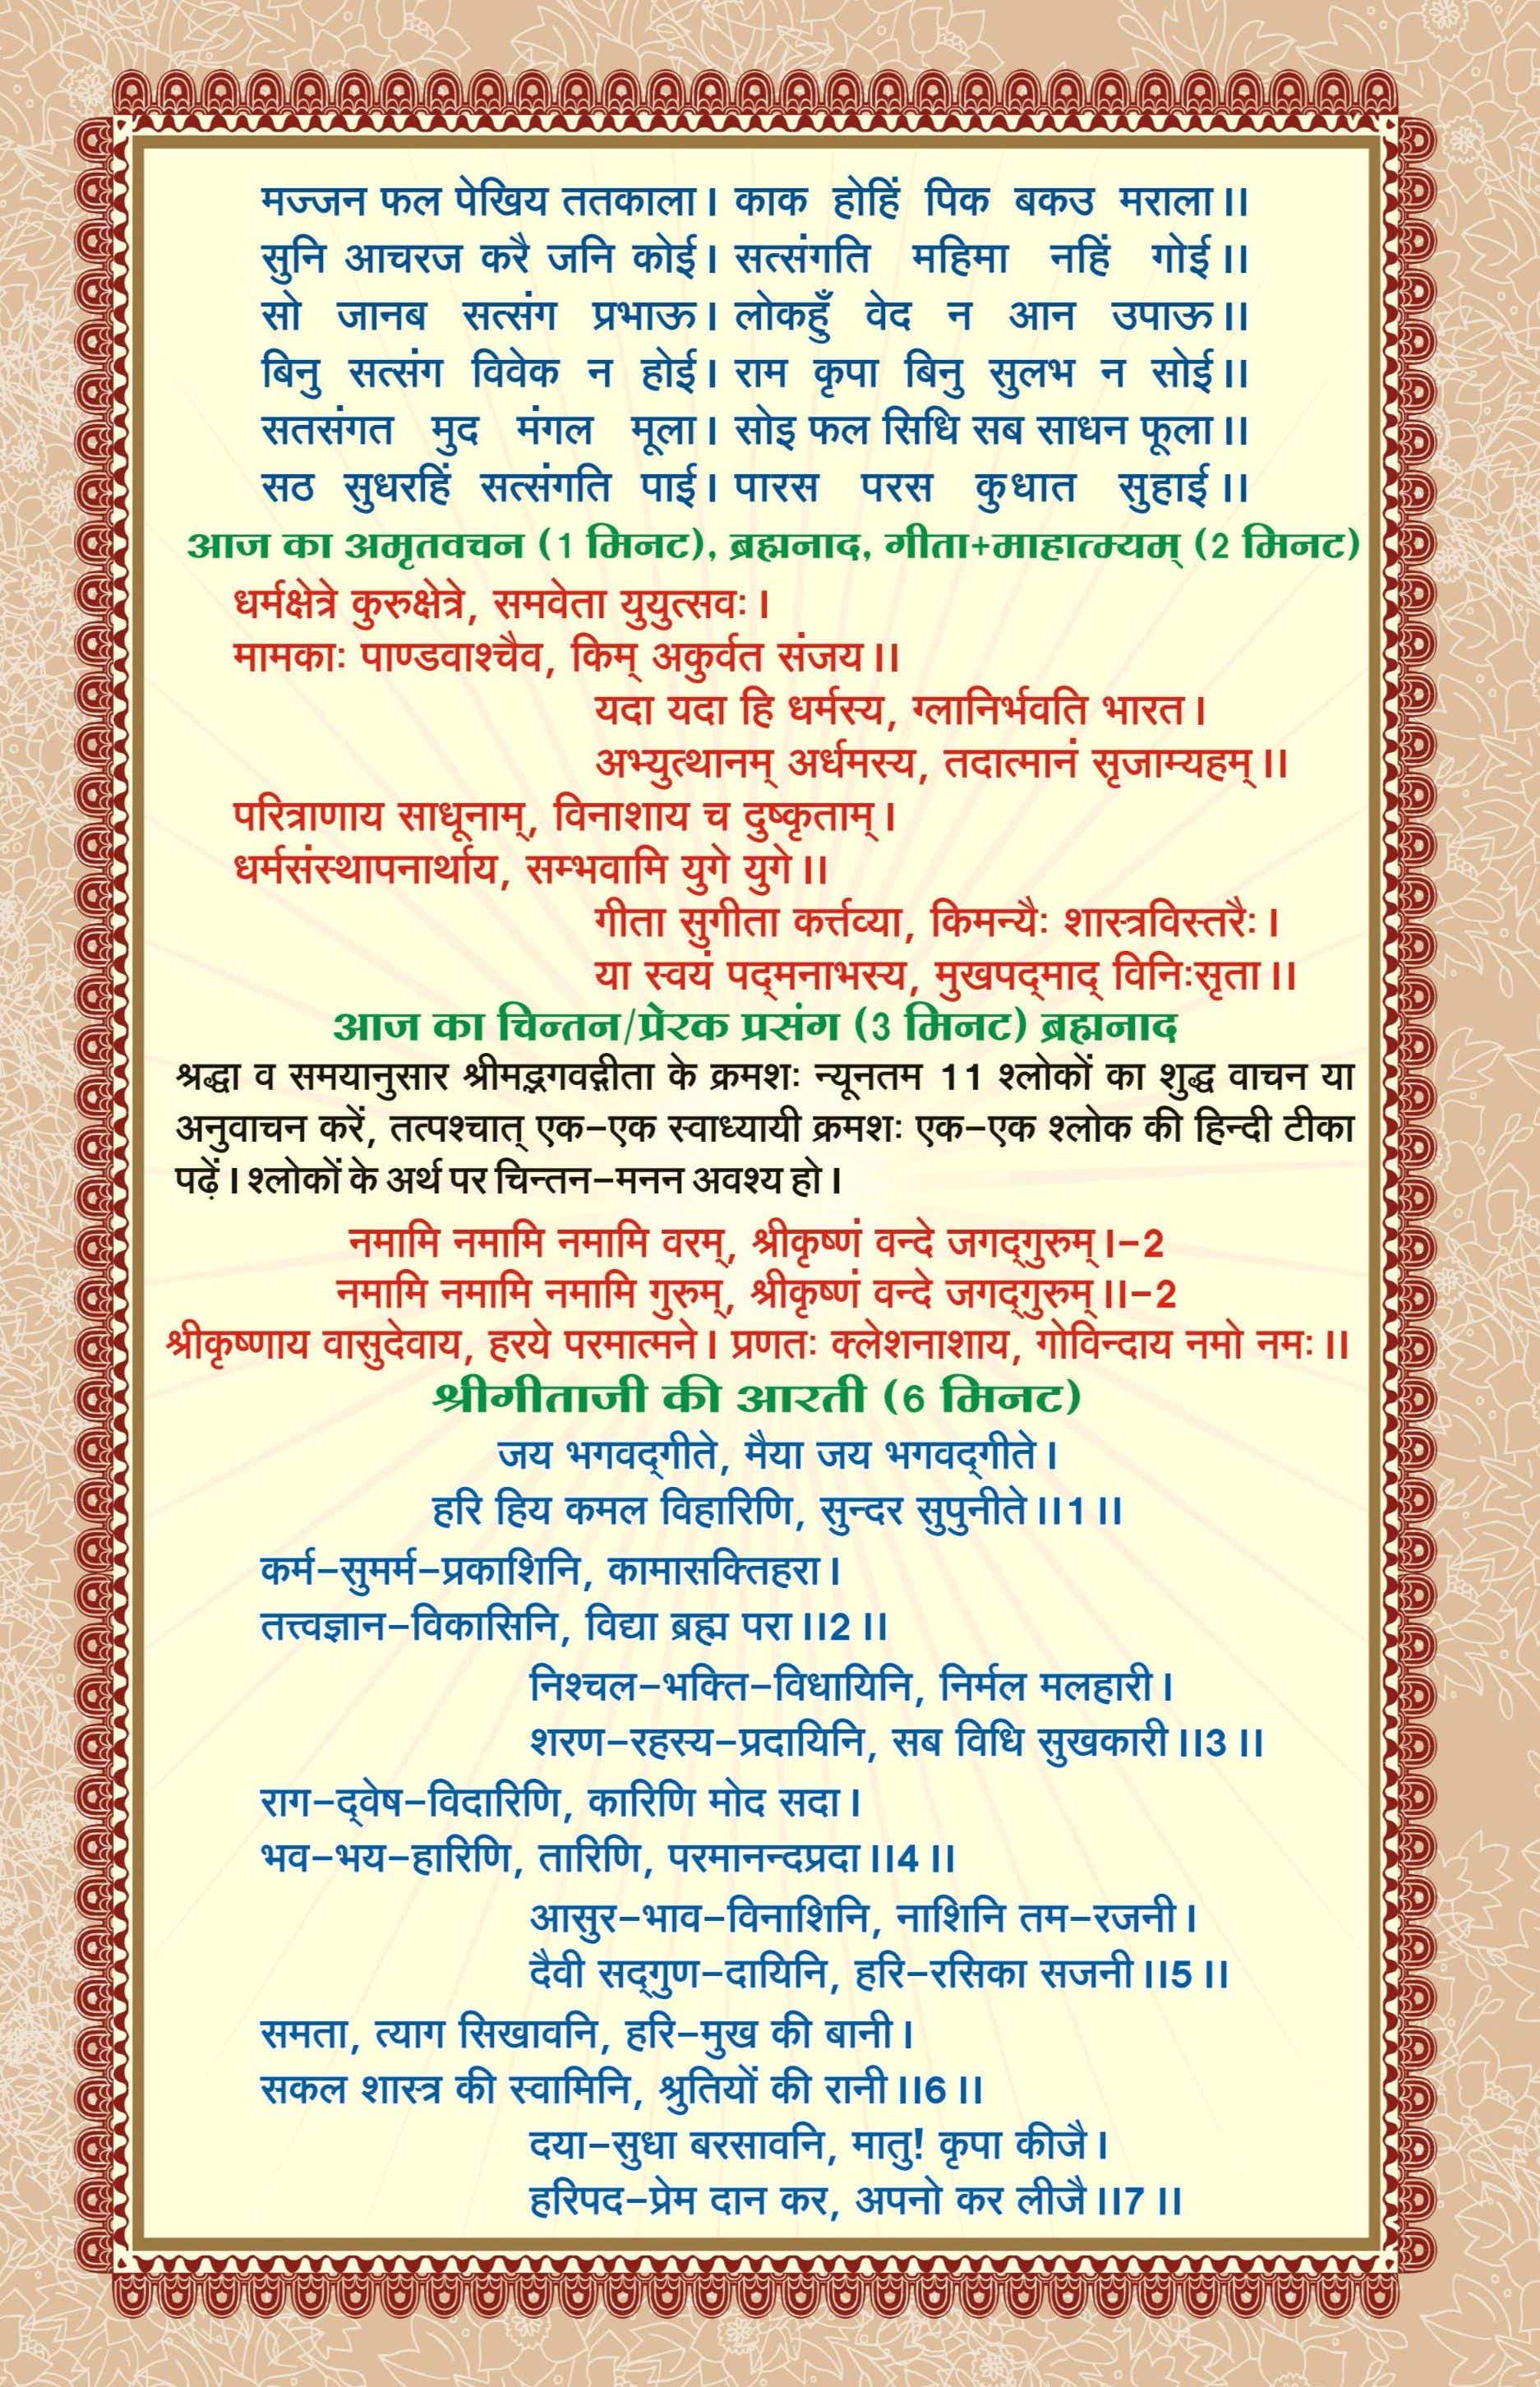 मज्जन फल पेखिय ततकाला। काक होहिं पिक बकउ मराला॥
सुनि आचरज करै जनि कोई। सत्संगति महिमा नहिं गोई॥
सो जानब सत्संग प्रभाऊ। लोकहुँ वेद न आन उपाऊ॥
बिनु सत्संग विवेक न होई। राम कृपा बिनु सुलभ न सोई॥
सतसंगत मुद मंगल मूला। सोइ फल सिधि सब साधन फूला॥
सठ सुधरहिं सत्संगति पाई। पारस परस कुधात सुहाई॥
आज का अमृतवचन (1 मिनट), ब्रह्मनाद, गीता+माहात्म्यम् (2 मिनट)
धर्मक्षेत्रे कुरुक्षेत्रे, समवेता युयुत्सवः।
मामकाः पाण्डवाश्चैव, किम् अकुर्वत संजय॥
यदा यदा हि धर्मस्य, ग्लानिर्भवति भारत।
अभ्युत्थानम् अर्धमस्य, तदात्मानं सृजाम्यहम्॥
परित्राणाय साधूनाम्, विनाशाय च दुष्कृताम्।
धर्मसंस्थापनार्थाय, सम्भवामि युगे युगे॥
गीता सुगीता कर्त्तव्या, किमन्यैः शास्त्रविस्तरैः।
या स्वयं पद्मनाभस्य, मुखपद्माद् विनिःसृता॥
आज का चिन्तन/प्रेरक प्रसंग (3 मिनट) ब्रह्मनाद
श्रद्धा व समयानुसार श्रीमद्भगवद्गीता के क्रमशः न्यूनतम 11 श्लोकों का शुद्ध वाचन या
अनुवाचन करें, तत्पश्चात् एक-एक स्वाध्यायी क्रमशः एक-एक श्लोक की हिन्दी टीका
पढ़ें। श्लोकों के अर्थ पर चिन्तन-मनन अवश्य हो।
नमामि नमामि नमामि वरम्, श्रीकृष्णं वन्दे जगद्गुरुम्।-2
नमामि नमामि नमामि गुरुम्, श्रीकृष्णं वन्दे जगद्गुरुम्॥-2
श्रीकृष्णाय वासुदेवाय, हरये परमात्मने। प्रणतः क्लेशनाशाय, गोविन्दाय नमो नमः॥
श्रीगीताजी की आरती (6 मिनट)
जय भगवद्गीते, मैया जय भगवद्गीते।
हरि हिय कमल विहारिणि, सुन्दर सुपुनीते॥1॥
कर्म-सुमर्म-प्रकाशिनि, कामासक्तिहरा।
तत्त्वज्ञान-विकासिनि, विद्या ब्रह्म परा॥2॥
निश्चल-भक्ति-विधायिनि, निर्मल मलहारी।
शरण-रहस्य-प्रदायिनि, सब विधि सुखकारी॥3॥
राग-द्वेष-विदारिणि, कारिणि मोद सदा।
भव-भय-हारिणि, तारिणि, परमानन्दप्रदा॥4॥
आसुर-भाव-विनाशिनि, नाशिनि तम-रजनी।
दैवी सद्गुण-दायिनि, हरि-रसिका सजनी॥5॥
समता, त्याग सिखावनि, हरि-मुख की बानी।
सकल शास्त्र की स्वामिनि, श्रुतियों की रानी॥6॥
दया-सुधा बरसावनि, मातु! कृपा कीजै।
हरिपद-प्रेम दान कर, अपनो कर लीजै॥7॥